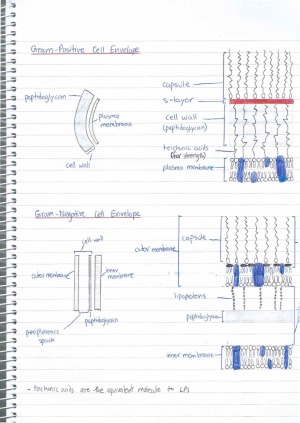 Gram-Positive Cell Envelope
peptidoglycan
plasma
membrane
cell wall
capsule
s-layer
cell wall
(peptidoglycan)
teichonic acids
(for strength)
plasma membrane
Gram-Negative Cell Envelope
cell wall
outer membrane
inner
membrane
periplasmic
space
peptidoglycan
capsule
outer membrane
lipoproteins
peptidoglycan
inner membrane
- teichonic acids are the equivalent molecule to LPS